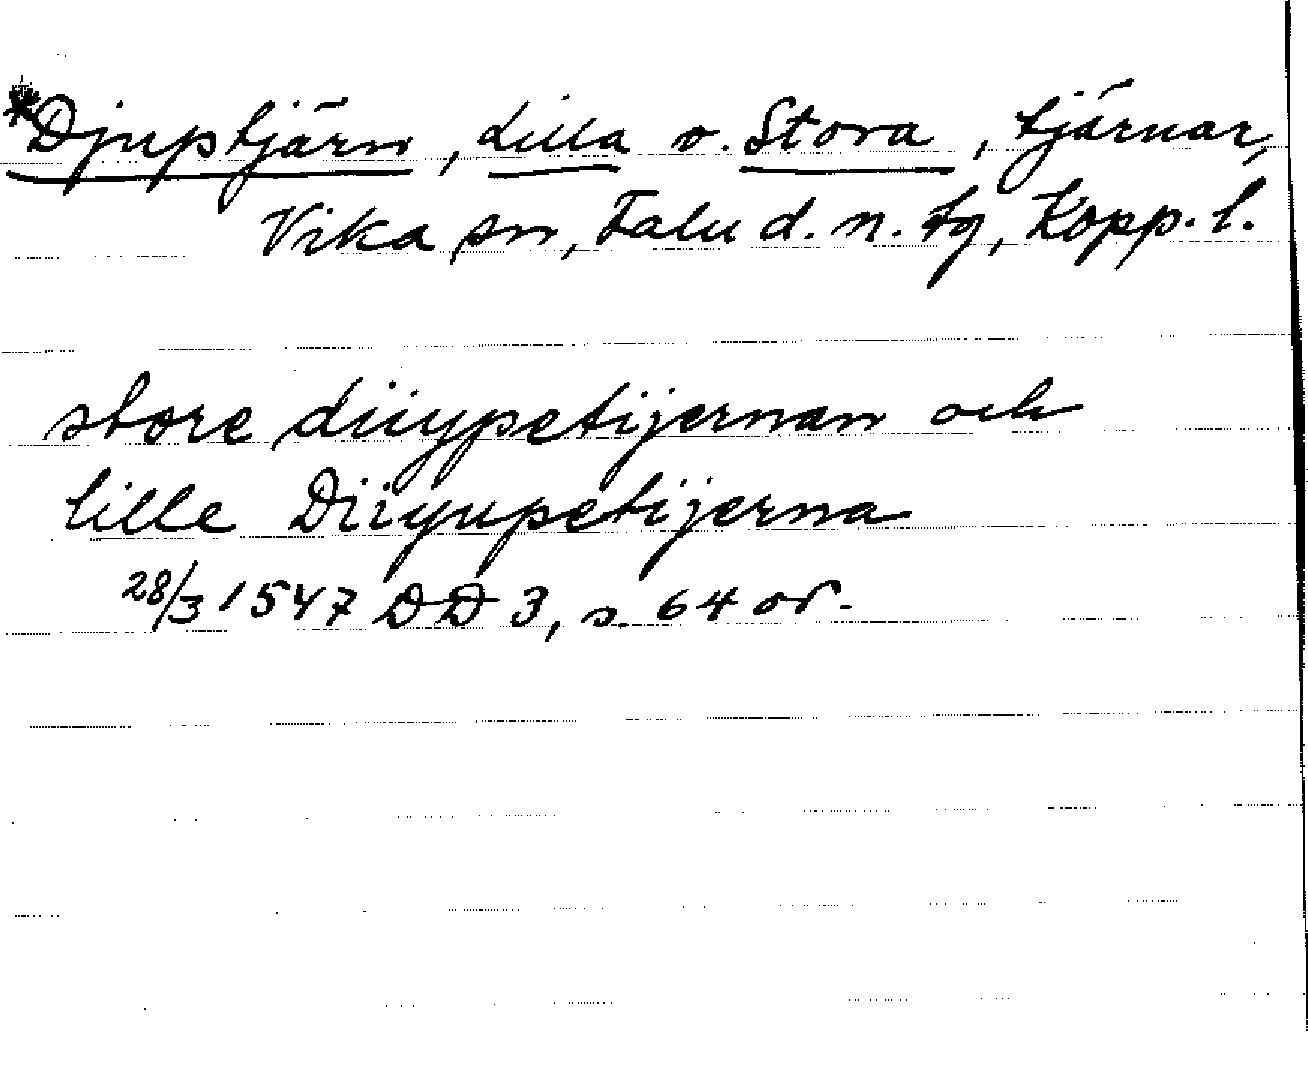 *Djuptjärn, Lilla o. Stora, tjärnar,
Vika sn, Falu d. n. tg, Kopp. l.
store diiypetijernan och
lille Diiyupetijerna
28/3 1547 DD 3, s. 64 or.